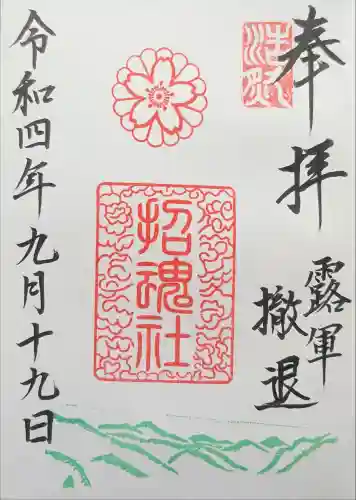 奉拝
露軍
撤退
招魂社
令和四年九月十九日